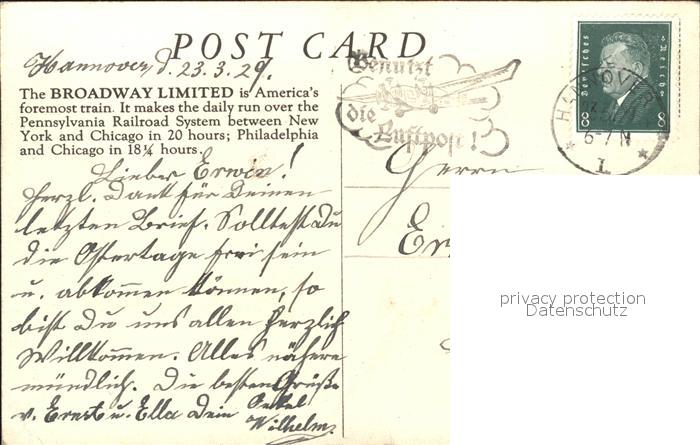 POST CARD
Hannover, d. 23.3.29.
The BROADWAY LIMITED is America's
foremost train. It makes the daily run over the
Pennsylvania Railroad System between New
York and Chicago in 20 hours; Philadelphia
and Chicago in 18¼ hours.
Lieber Erwin!
Herzl. Dank für Deinen
letzten Brief. Solltest Du
die Ostertage frei sein
u. abkommen können, so
bist Du uns allen herzlich
Willkommen. Alles nähere
mündlich. Die besten Grüße
v. Ernst u. Ella Dein Onkel
Wilhelm.
Benutzt
die
Luftpost!
Deutsches Reich
8 8
HANNOVER
6-7 N
* 1 *
Herrn
Er
privacy protection
Datenschutz